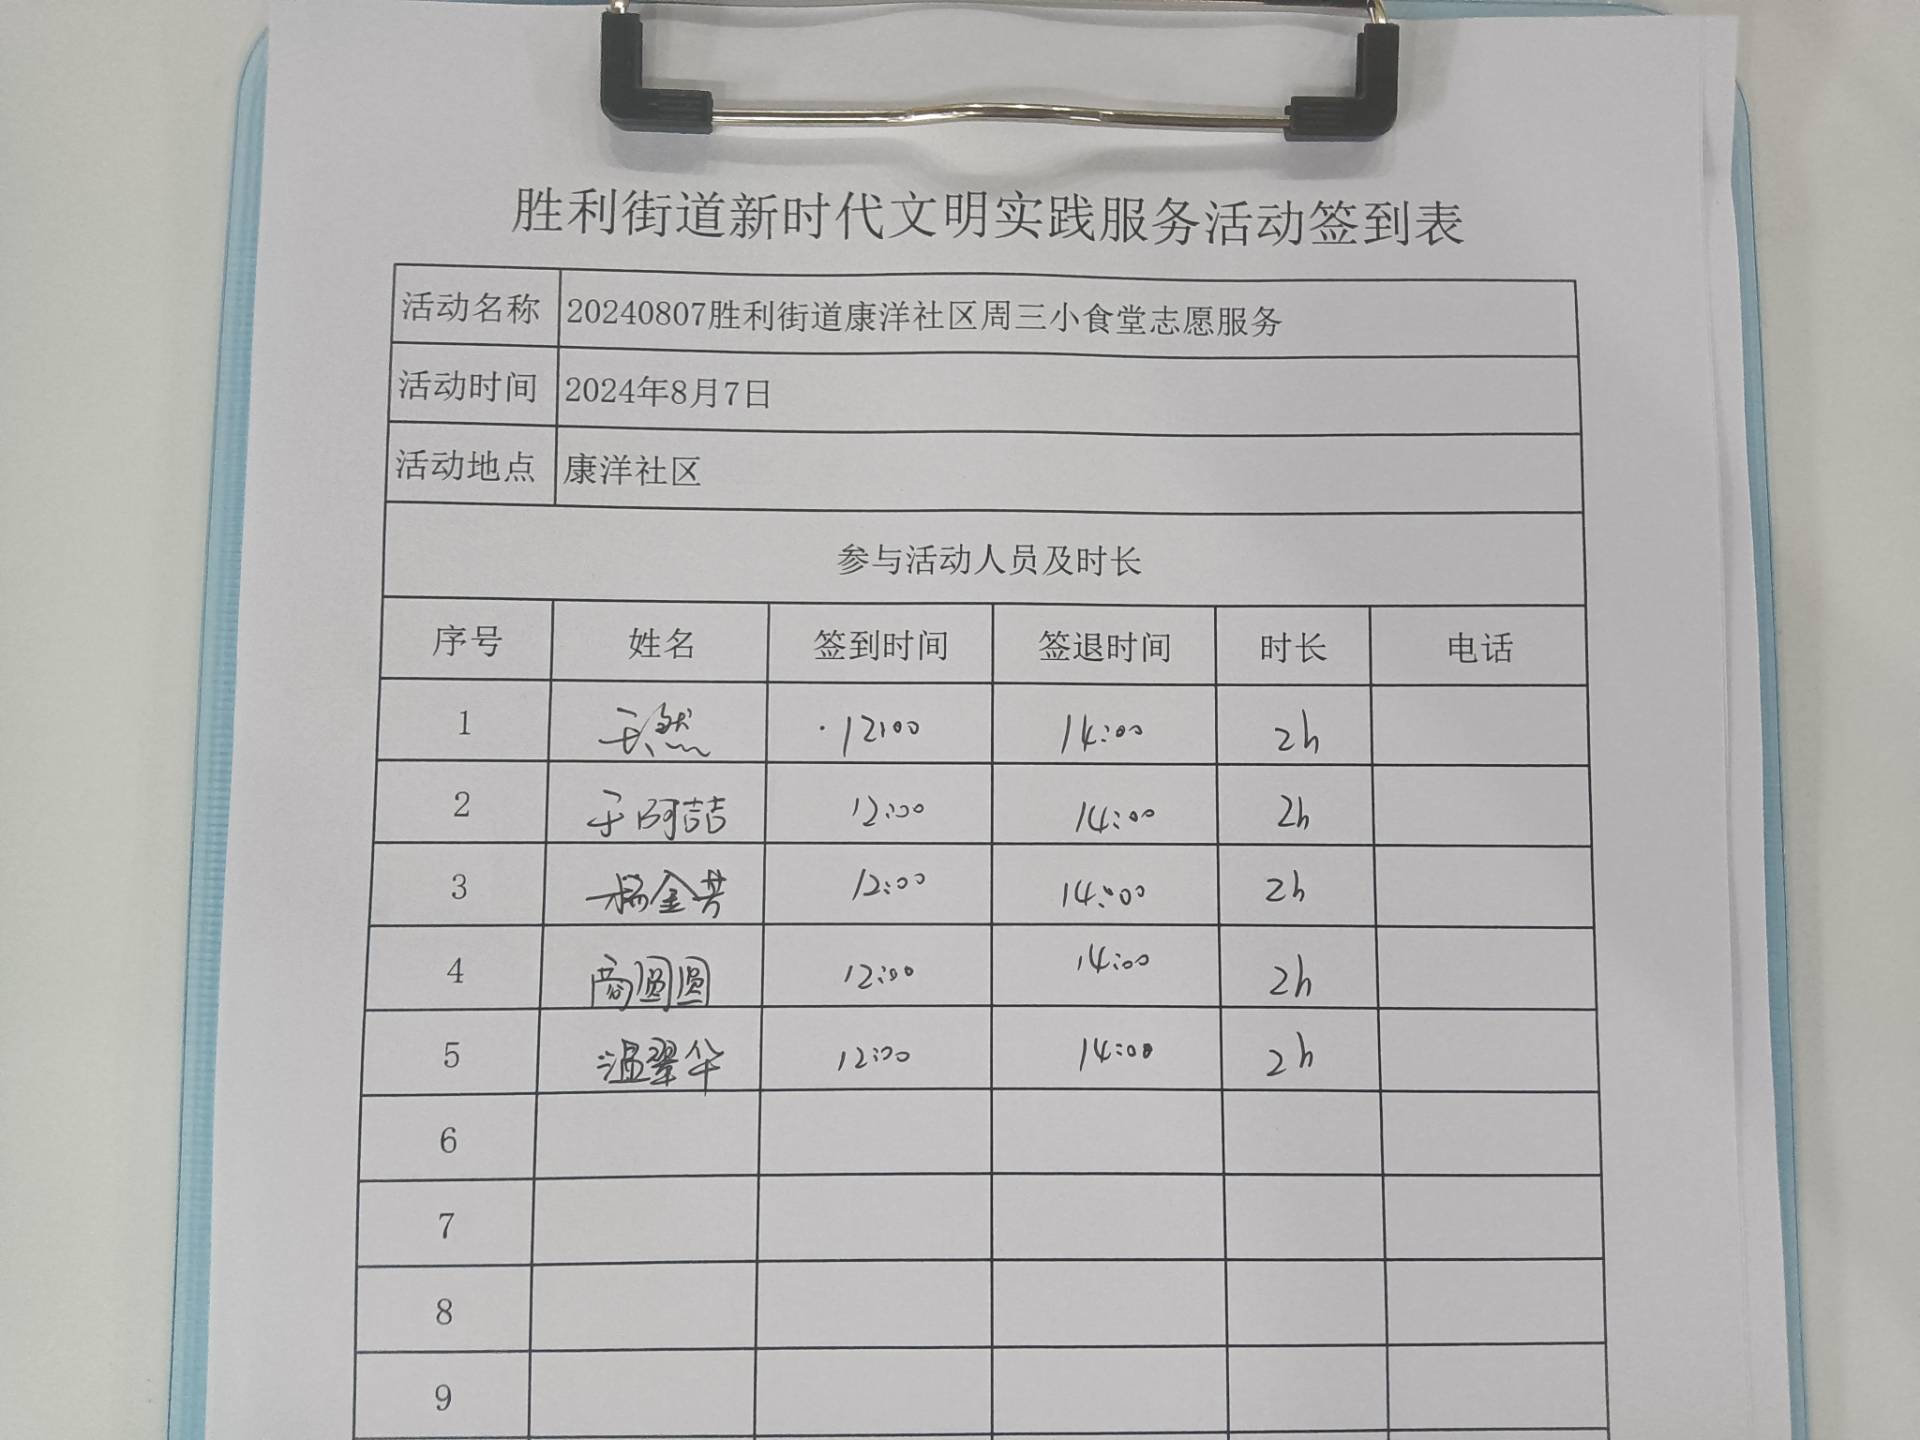 胜利街道新时代文明实践服务活动签到表
活动名称 20240807胜利街道康洋社区周三小食堂志愿服务
活动时间 2024年8月7日
活动地点 康洋社区
参与活动人员及时长
序号 姓名 签到时间 签退时间 时长 电话
1 12:00 14:00 2h
2 于阿喆 12:00 14:00 2h
3 杨金芳 12:00 14:00 2h
4 商圆圆 12:00 14:00 2h
5 温翠华 12:00 14:00 2h
6
7
8
9